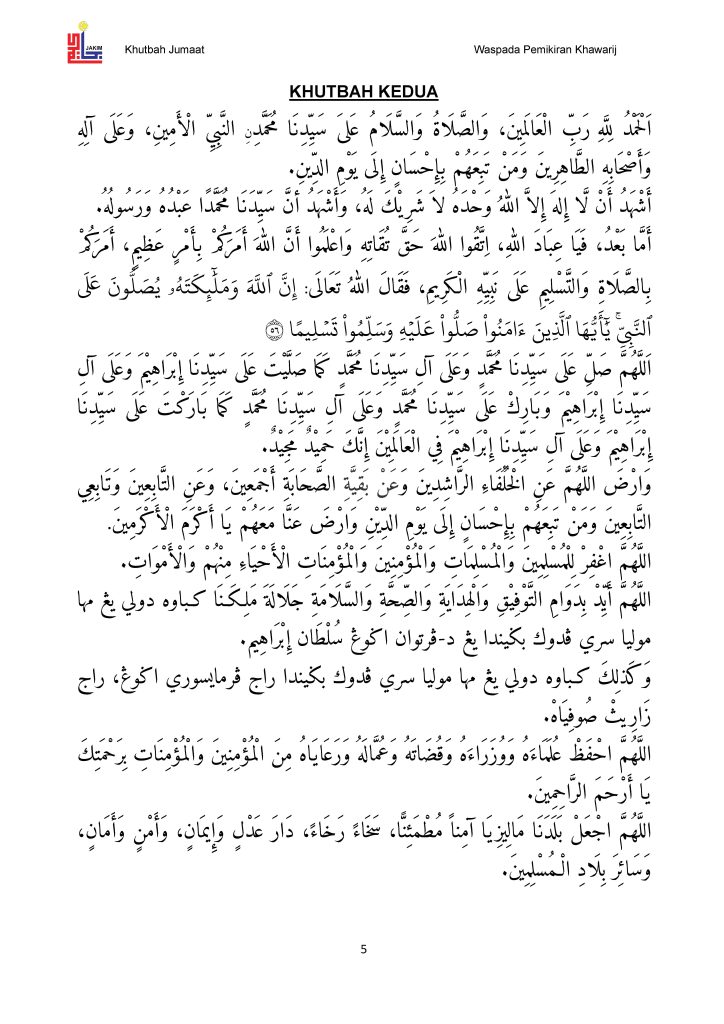 JAKIM
Khutbah Jumaat
Waspada Pemikiran Khawarij
KHUTBAH KEDUA
اَلْحَمْدُ لِلَّهِ رَبِّ الْعَالَمِينَ، وَالصَّلَاةُ وَالسَّلَامُ عَلَى سَيِّدِنَا مُحَمَّدٍنِ النَّبِيِّ الْأَمِينِ، وَعَلَى آلِهِ
وَأَصْحَابِهِ الطَّاهِرِينَ وَمَنْ تَبِعَهُمْ بِإِحْسَانٍ إِلَى يَوْمِ الدِّينِ.
أَشْهَدُ أَنْ لَّا إِلٰهَ إِلاَّ اللهُ وَحْدَهُ لاَ شَرِيْكَ لَهُ، وَأَشْهَدُ أنَّ سَيِّدَنَا مُحَمَّدًا عَبْدُهُ وَرَسُولُهُ.
أَمَّا بَعْدُ، فَيَا عِبَادَ اللهِ، اِتَّقُوا اللهَ حَقَّ تُقَاتِهِ وَاعْلَمُوا أَنَّ اللهَ أَمَرَكُمْ بِأَمْرٍ عَظِيمٍ، أَمَرَكُمْ
بِالصَّلَاةِ وَالتَّسْلِيمِ عَلَى نَبِيِّهِ الْكَرِيمِ، فَقَالَ اللهُ تَعَالَى: إِنَّ ٱللَّهَ وَمَلَٰٓئِكَتَهُۥ يُصَلُّونَ عَلَى
ٱلنَّبِىِّۚ يَٰٓأَيُّهَا ٱلَّذِينَ ءَامَنُواْ صَلُّواْ عَلَيْهِ وَسَلِّمُواْ تَسْلِيمًا ٥٦
اَللَّهُمَّ صَلِّ عَلَى سَيِّدِنَا مُحَمَّدٍ وَعَلَى آلِ سَيِّدِنَا مُحَمَّدٍ كَمَا صَلَّيْتَ عَلَى سَيِّدِنَا إِبْرَاهِيْمَ وَعَلَى آلِ
سَيِّدِنَا إِبْرَاهِيْمَ وَبَارِكْ عَلَى سَيِّدِنَا مُحَمَّدٍ وَعَلَى آلِ سَيِّدِنَا مُحَمَّدٍ كَمَا بَارَكْتَ عَلَى سَيِّدِنَا
إِبْرَاهِيْمَ وَعَلَى آلِ سَيِّدِنَا إِبْرَاهِيْمَ فِي الْعَالَمِيْنَ إِنَّكَ حَمِيْدٌ مَجِيْدٌ.
وَارْضَ اللَّهُمَّ عَنِ الْخُلَفَاءِ الرَّاشِدِينَ وَعَنْ بَقِيَّةِ الصَّحَابَةِ أَجْمَعِينَ، وَعَنِ التَّابِعِينَ وَتَابِعِي
التَّابِعِينَ وَمَنْ تَبِعَهُمْ بِإِحْسَانٍ إِلَى يَوْمِ الدِّيْنِ وَارْضَ عَنَّا مَعَهُمْ يَا أَكْرَمَ الْأَكْرَمِينَ.
اللَّهُمَّ اغْفِرْ لِلْمُسْلِمِينَ وَالْمُسْلِمَاتِ وَالْمُؤْمِنِينَ وَالْمُؤْمِنَاتِ الْأَحْيَاءِ مِنْهُمْ وَالْأَمْوَاتِ.
اللَّهُمَّ أَيِّدْ بِدَوَامِ التَّوْفِيْقِ وَالْهِدَايَةِ وَالصِّحَّةِ وَالسَّلَامَةِ جَلَالَةَ مَلِكَنَا كباوه دولي يڠ مها
موليا سري ڤدوك بڬيندا يڠ د-ڤرتوان اڬوڠ سُلْطَان إِبْرَاهِيم.
وَكَذٰلِكَ كباوه دولي يڠ مها موليا سري ڤدوك بڬيندا راج ڤرمايسوري اڬوڠ، راج
زَارِيثْ صُوفِيَاهْ.
اللَّهُمَّ احْفَظْ عُلَمَاءَهُ وَوُزَرَاءَهُ وَقُضَاتَهُ وَعُمَّالَهُ وَرَعَايَاهُ مِنَ الْمُؤْمِنِينَ وَالْمُؤْمِنَاتِ بِرَحْمَتِكَ
يَا أَرْحَمَ الرَّاحِمِينَ.
اللَّهُمَّ اجْعَلْ بَلْدَتَنَا مَالِيزِيَا آمِناً مُطْمَئِنًّا، سَخَاءً رَخَاءً، دَارَ عَدْلٍ وَإِيمَانٍ، وَأَمْنٍ وَأَمَانٍ،
وَسَائِرَ بِلَادِ الْمُسْلِمِينَ.
5